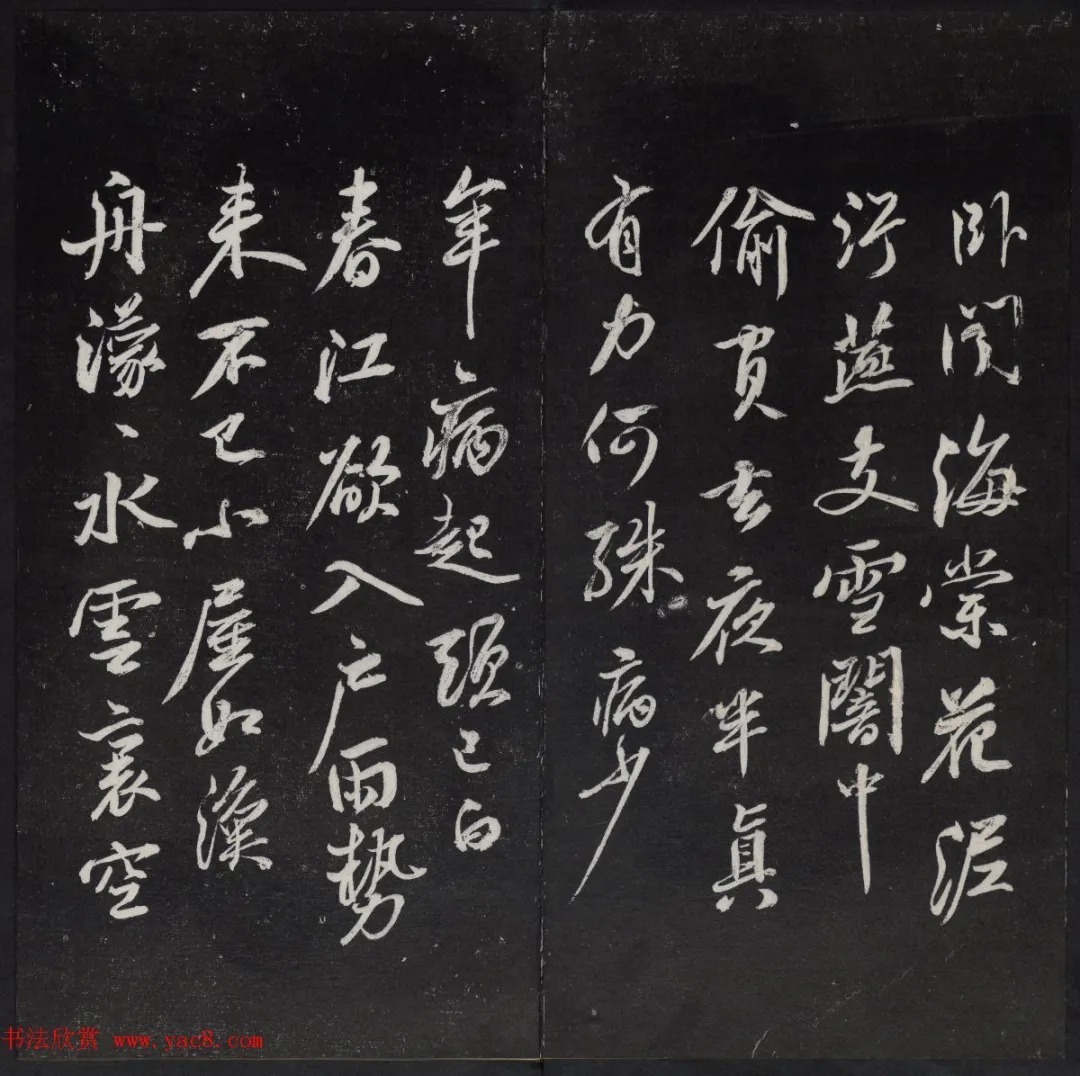 卧聞海棠花泥
汙燕支雪闇中
偷負去夜半真
有力何殊病少
年病起頭已白
春江欲入户雨勢
来不已小屋如漁
舟濛〻水雲裏空
书法欣赏 www.yac8.com